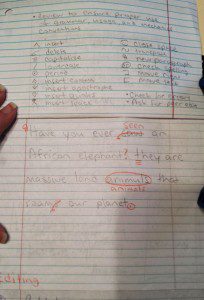 • Review to ensure proper use
of grammar, usage, and mechanics
conventions
^ insert
delete
capitalize
lowercase
period
insert comma
insert apostrophe
insert quotes
insert space
close space
transpose
new paragraph
check spelling
move right
move left
* Check for
* Ask for peer edit
seen
Have you ever an
African elephant? they are
massive land animals that
animals
roam our planet
Editing